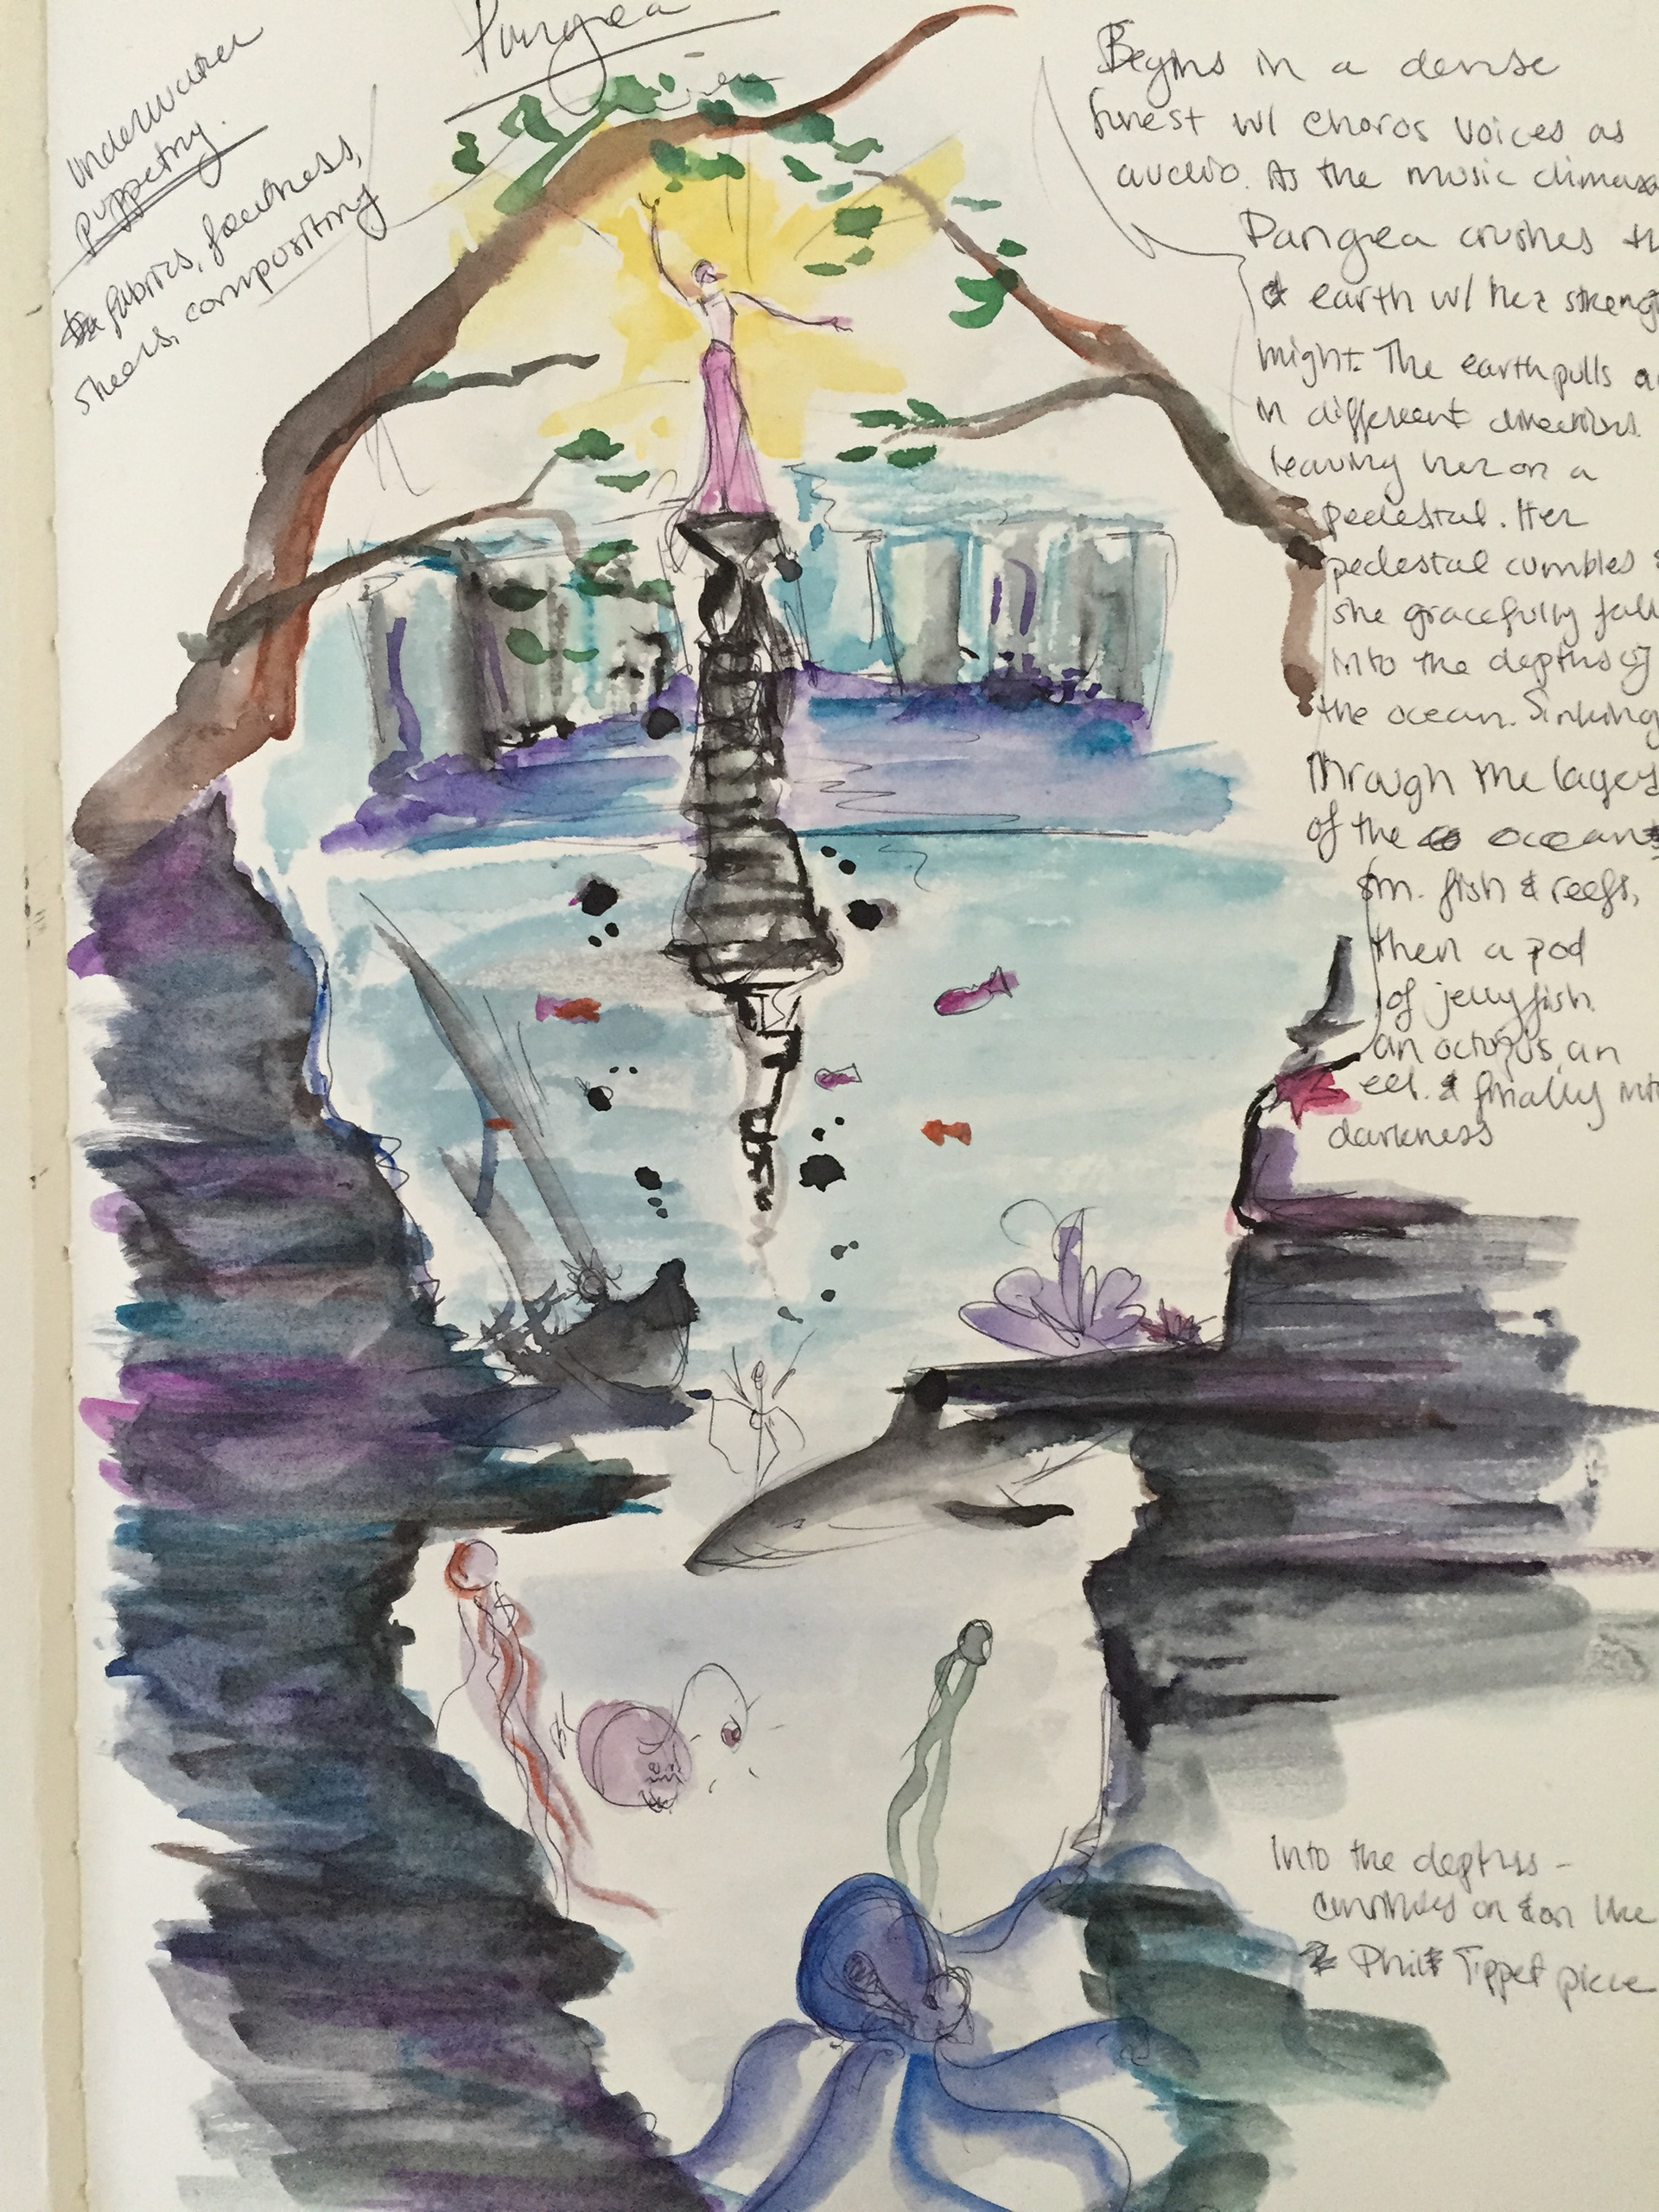 Pangea
underwater
puppetry.
fabrics, feathers,
sheers, compositing
Begins in a dense
forest w/ choros voices as
audio. As the music climaxa
Pangea crushes th
earth w/ her streng
might. The earth pulls a
in different directions.
leaving her on a
pedestal. Her
pedestal cumbles &
she gracefully fall
into the depths of
the ocean. Sinking
through the layers
of the ocean
sm. fish & reefs,
then a pod
of jellyfish
an octopus, an
eel. & finally into
darkness
Into the depths -
continues on & on like
Phil Tippet piece